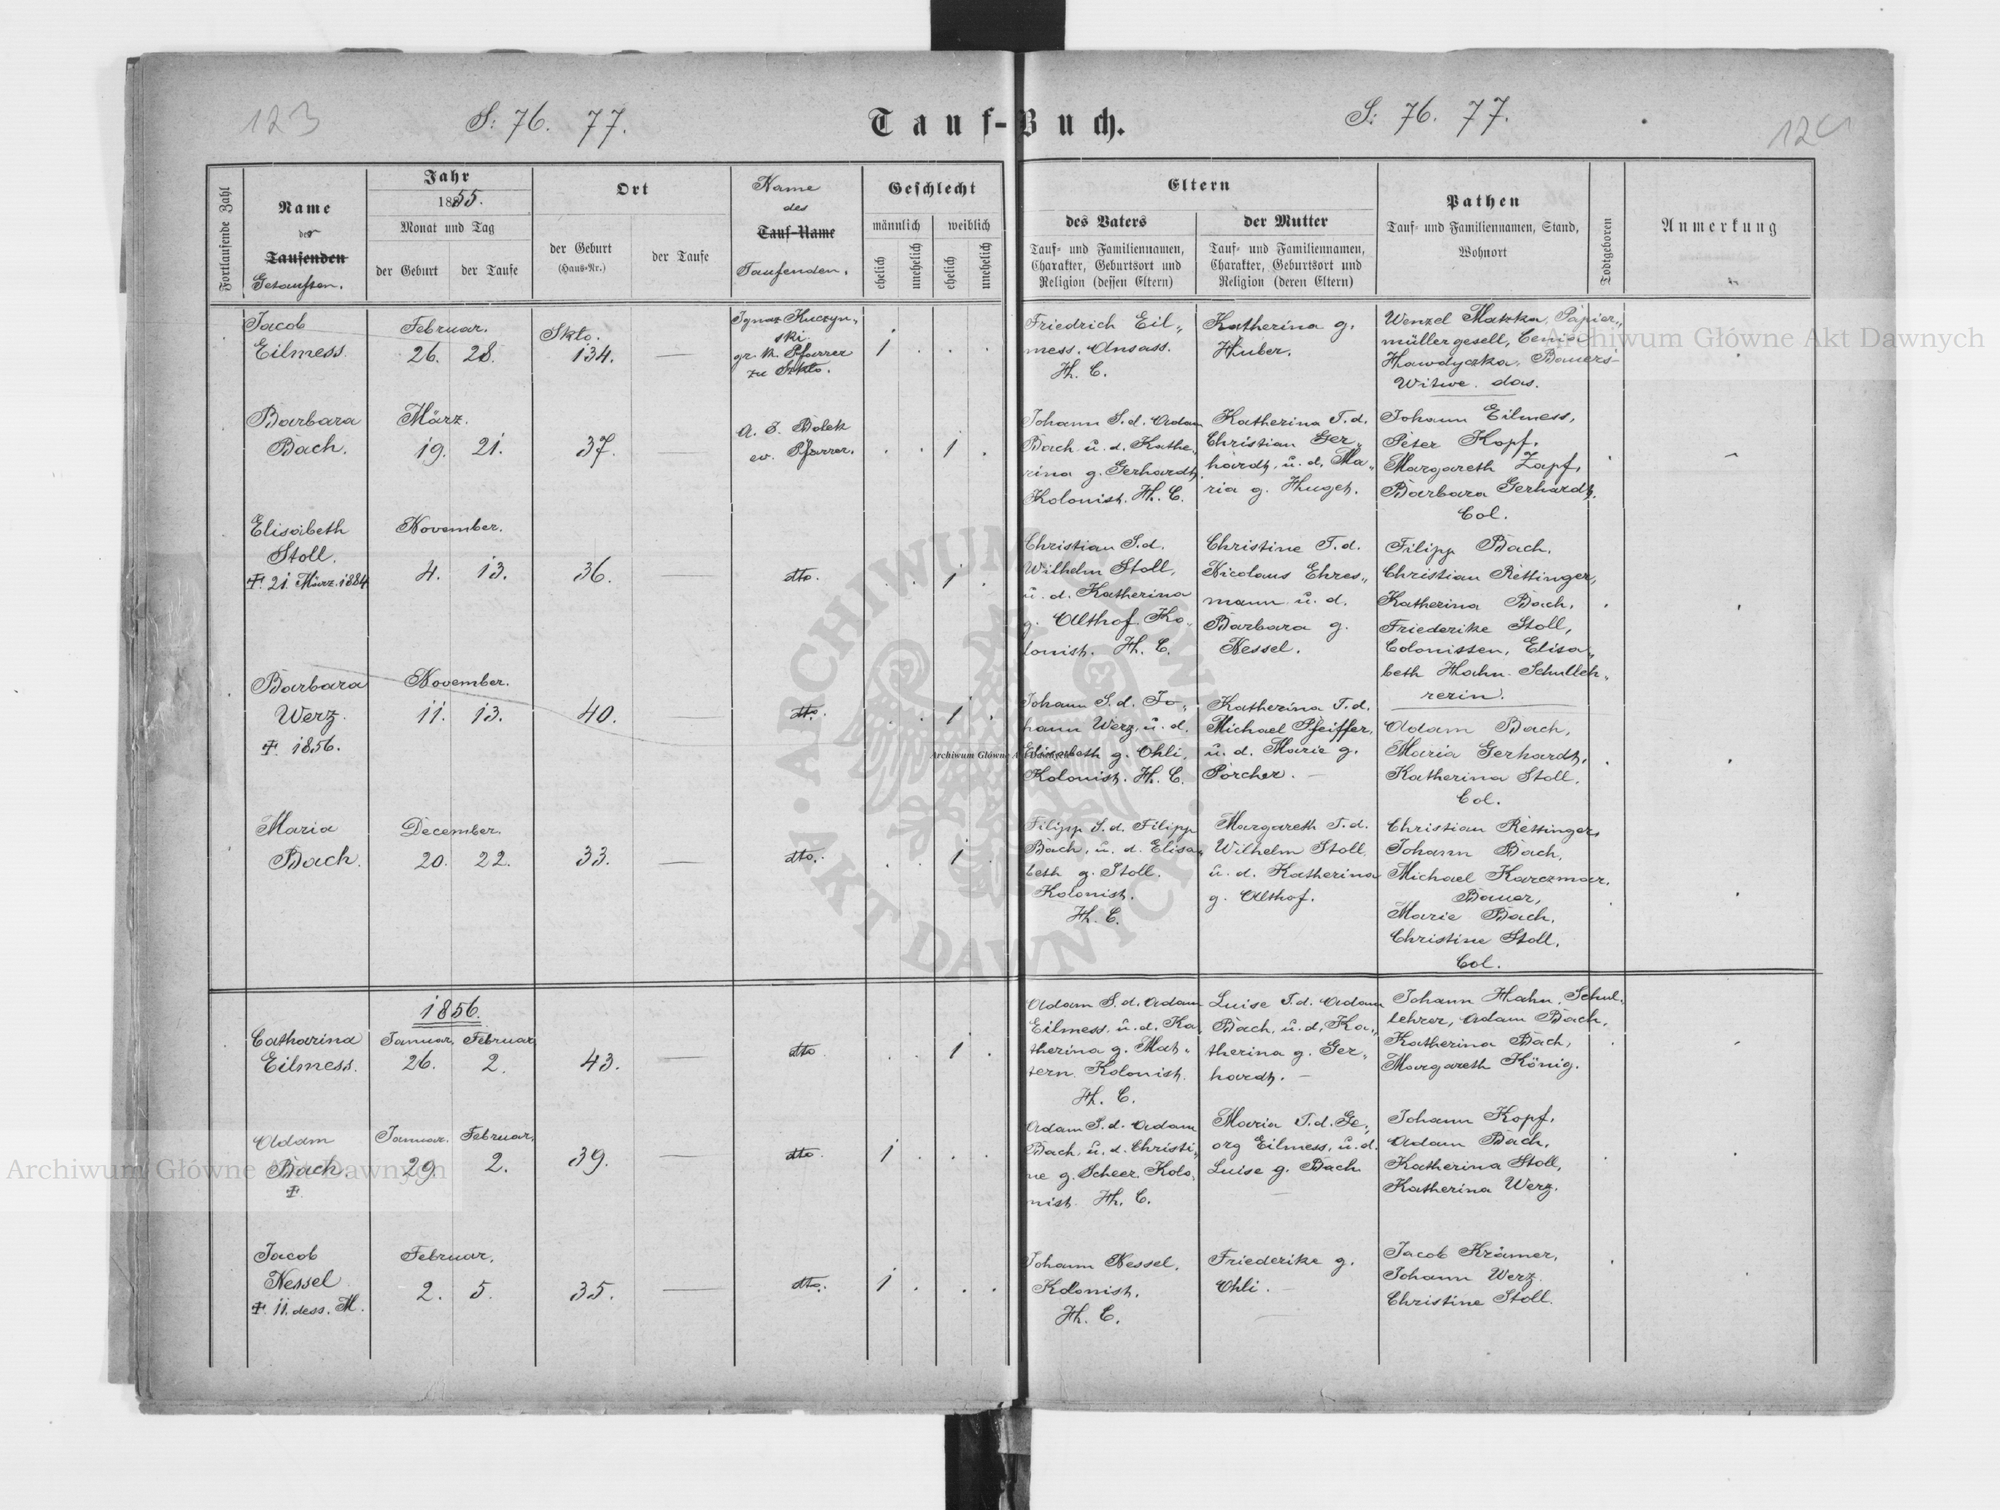 123
S: 76. 77.
Tauf-Buch.
S: 76. 77.
124
Fortlaufende Zahl
Name
der
Taufenden
Getauften.
Jahr
1855.
Monat und Tag
der Geburt
der Taufe
Ort
der Geburt
(Haus-Nr.)
der Taufe
Name
des
Tauf-Name
Taufenden.
Geschlecht
männlich
weiblich
ehelich
unehelich
ehelich
unehelich
Eltern
des Vaters
Tauf- und Familiennamen,
Charakter, Geburtsort und
Religion (dessen Eltern)
der Mutter
Tauf- und Familiennamen,
Charakter, Geburtsort und
Religion (deren Eltern)
Pathen
Tauf- und Familiennamen, Stand,
Wohnort
Todtgeboren
Anmerkung
Jacob
Eilmess.
Februar.
26. 28.
Skto.
134.
Ignaz Kuczyn-
ski
gr. k. Pfarrer
zu Szkto.
1
Friedrich Eil-
mess. Ansass.
H. C.
Katherina g.
Huber.
Wenzel Matzka, Papier-
müllergesell,
Hawdyczka, Bauers-
Witwe. das.
Barbara
Bach.
März.
19. 21.
37.
A. J. Bolek
ev. Pfarrer.
1
Johann S. d. Adam
Bach u. d. Kathe-
rina g. Gerhardt,
Kolonist. H. C.
Katherina T. d.
Christian Ger-
hardt, u. d. Ma-
ria g. Huget.
Johann Eilmess,
Peter Kopf,
Margareth Zapf,
Barbara Gerhardt,
Col.
Elisabeth
Stoll.
† 21. März 1884
November.
4. 13.
36.
dto.
1
Christian S. d.
Wilhelm Stoll,
u. d. Katherina
g. Althof, Ko-
lonist. H. C.
Christine T. d.
Nicolaus Ehres-
mann u. d.
Barbara g.
Nessel.
Filipp Bach,
Christian Rettinger,
Katherina Bach,
Friederike Stoll,
Colonisten, Elisa-
beth Hahn Schulleh-
rerin.
Barbara
Werz.
† 1856.
November.
11. 13.
40.
dto.
1
Johann S. d. Jo-
hann Werz, u. d.
Elisabeth g. Ohli,
Kolonist. H. C.
Katherina T. d.
Michael Pfeiffer,
u. d. Marie g.
Porcher.
Adam Bach,
Maria Gerhardt,
Katherina Stoll.
Col.
Maria
Bach.
December.
20. 22.
33.
dto.
1
Filipp S. d. Filipp
Bach, u. d. Elisa-
beth g. Stoll.
Kolonist.
H. C.
Margareth T. d.
Wilhelm Stoll
u. d. Katherina
g. Althof.
Christian Rettinger,
Johann Bach,
Michael Karczmar,
Bauer,
Marie Bach,
Christine Stoll,
Col.
1856.
Catharina
Eilmess.
Januar. Februar
26. 2.
43.
dto
1
Adam S. d. Adam
Eilmess, u. d. Ka-
therina g. Mat-
tern. Kolonist.
H. C.
Luise T. d. Adam
Bach, u. d. Ka-
therina g. Ger-
hardt.
Johann Hahn, Schul-
lehrer, Adam Bach,
Katherina Bach,
Margareth König.
Adam
Bach.
†
Januar. Februar.
29. 2.
39.
dto.
1
Adam S. d. Adam
Bach, u. d. Christi-
ne g. Scheer. Kolo-
nist. H. C.
Maria T. d. Ge-
org Eilmess, u. d.
Luise g. Bach
Johann Kopf,
Adam Bach,
Katherina Stoll,
Katherina Werz.
Jacob
Nessel
† 11. dess. M.
Februar.
2. 5.
35.
dto.
1
Johann Nessel,
Kolonist.
H. C.
Friederike g.
Ohli.
Jacob Krämer,
Johann Werz.
Christine Stoll.
Archiwum Główne Akt Dawnych
Archiwum Główne Akt Dawnych
Archiwum Główne Akt Dawnych